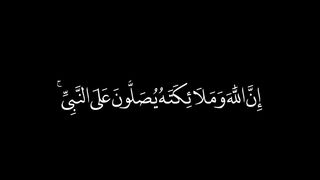 إِنَّ اللَّهَ وَمَلَائِكَتَهُ يُصَلُّونَ عَلَى النَّبِيِّ ۚ